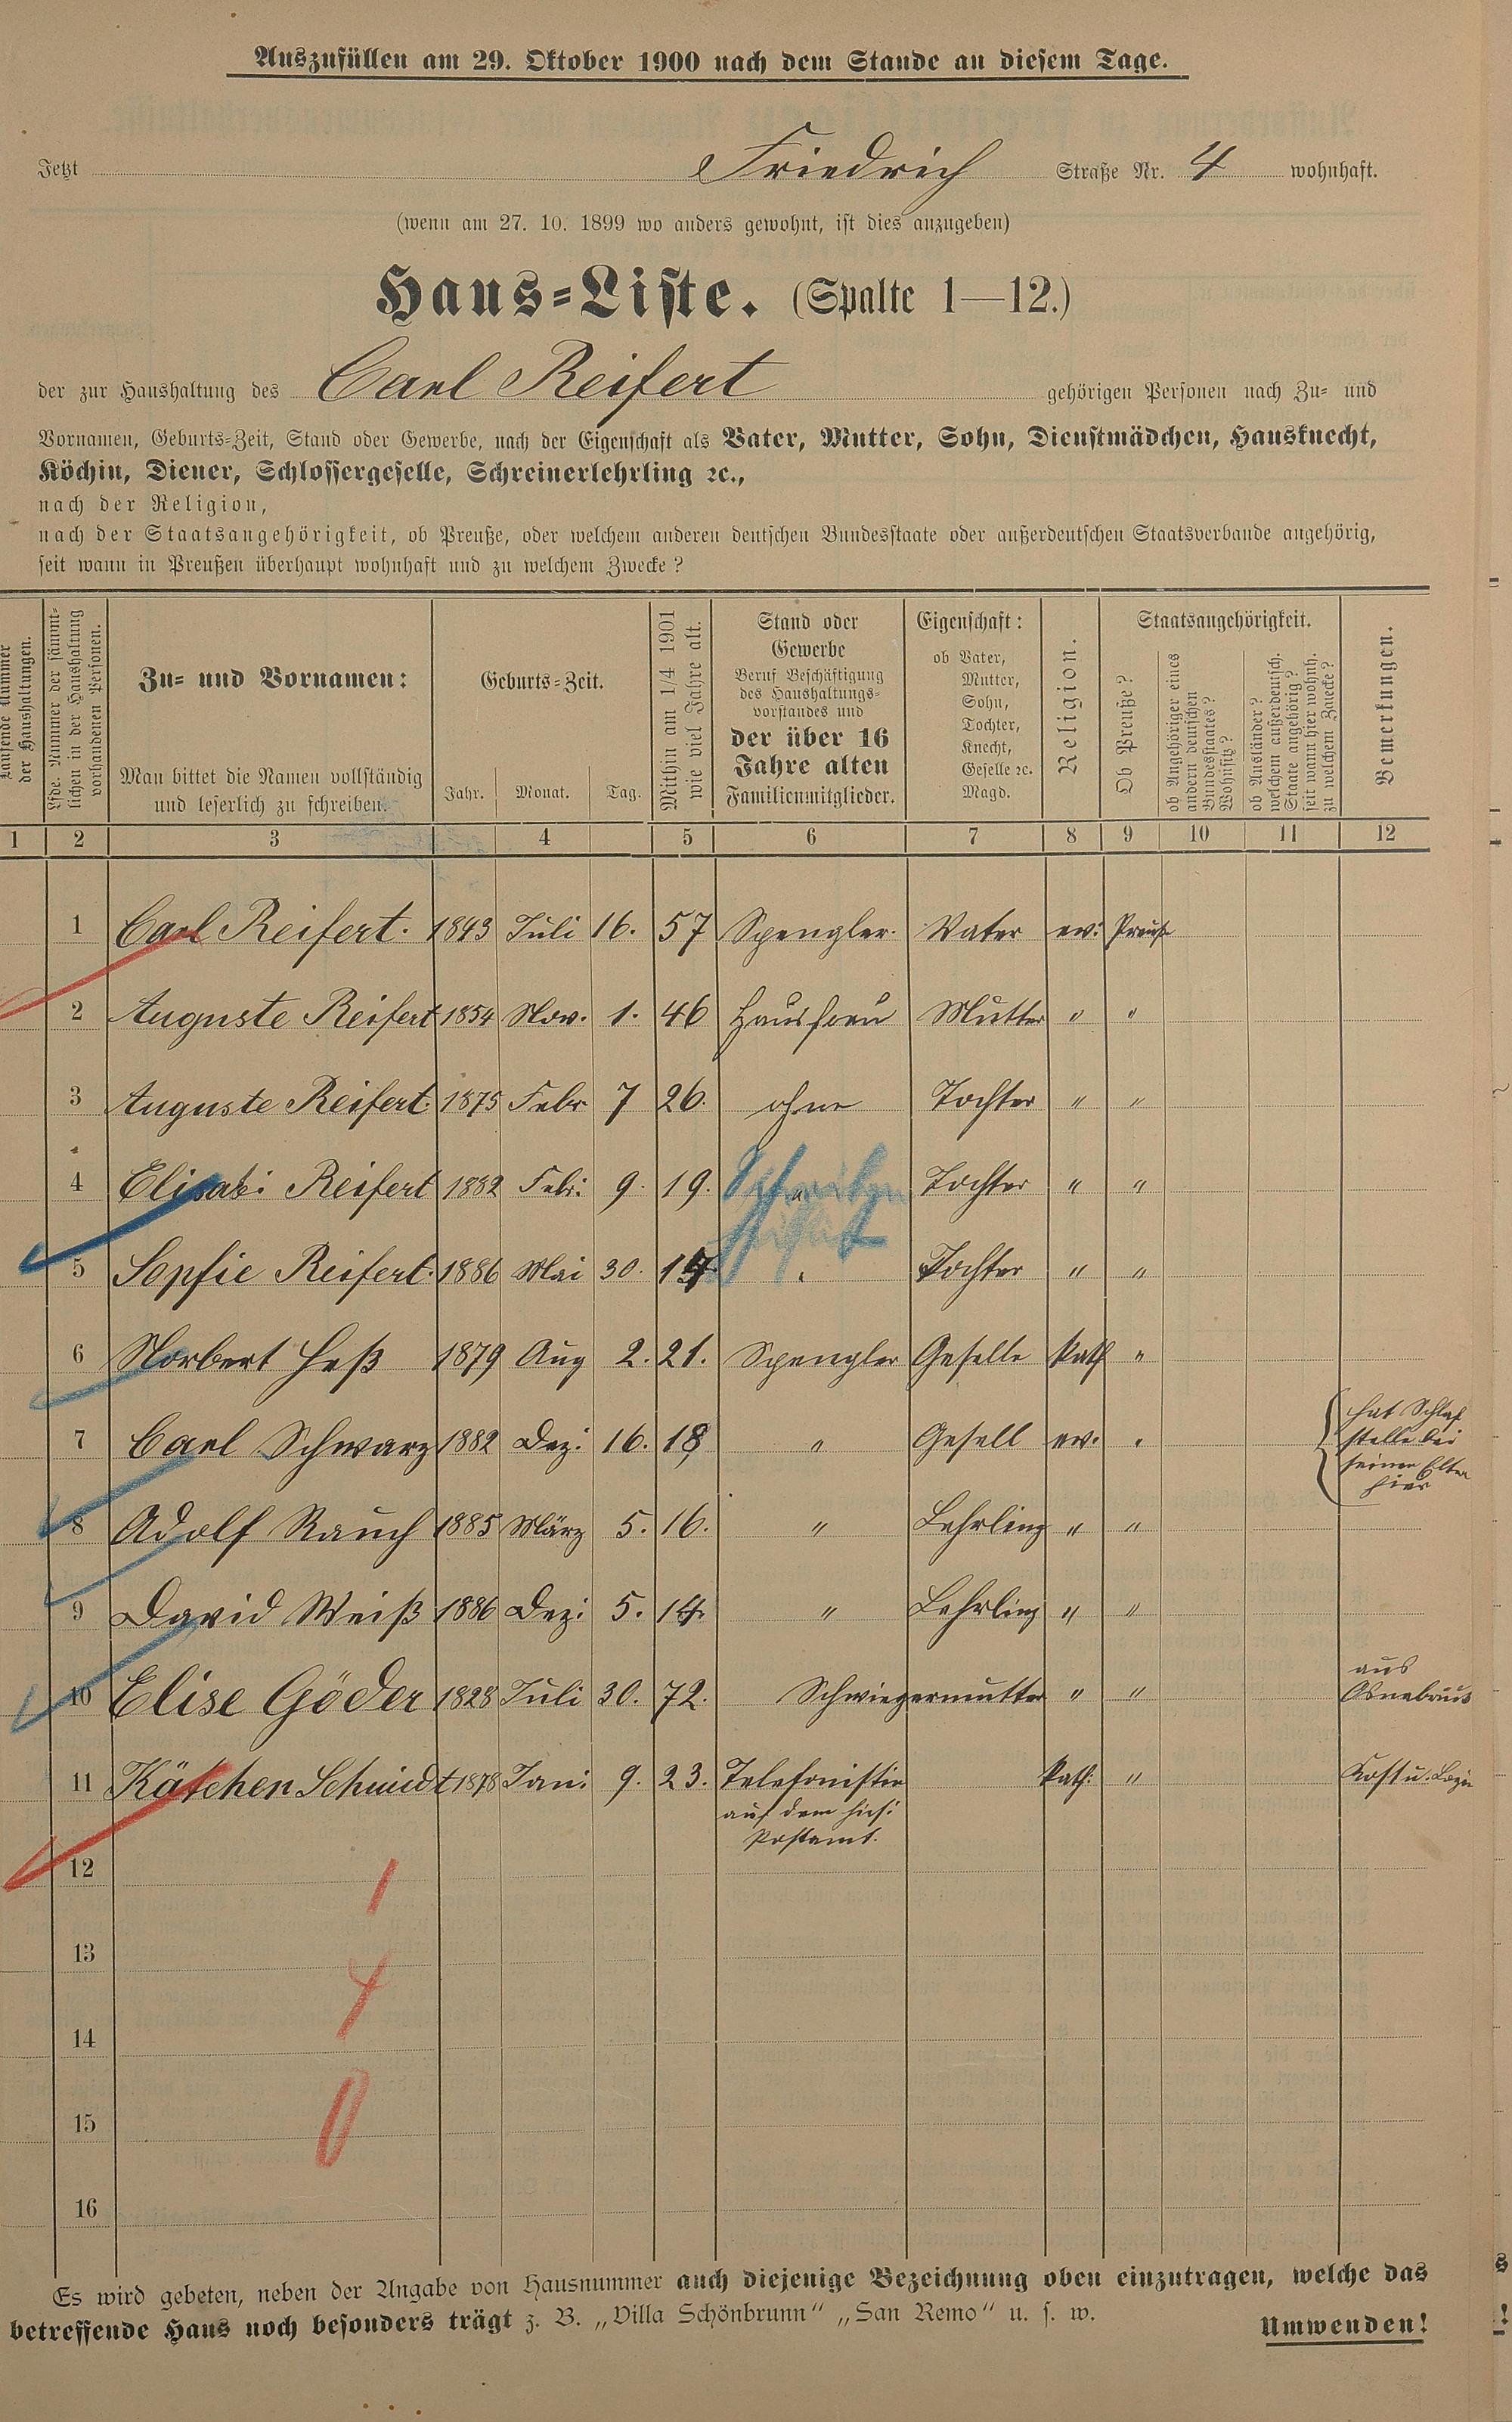 Auszufüllen am 29. Oktober 1900 nach dem Stande an diesem Tage.
Jetzt Friedrich Straße Nr. 4 wohnhaft.
(wenn am 27. 10. 1899 wo anders gewohnt, ist dies anzugeben)
Haus=Liste. (Spalte 1—12.)
der zur Haushaltung des Carl Reifert gehörigen Personen nach Zu= und
Vornamen, Geburts=Zeit, Stand oder Gewerbe, nach der Eigenschaft als Vater, Mutter, Sohn, Dienstmädchen, Hausknecht,
Köchin, Diener, Schlossergeselle, Schreinerlehrling ꝛc.,
nach der Religion,
nach der Staatsangehörigkeit, ob Preuße, oder welchem anderen deutschen Bundesstaate oder außerdeutschen Staatsverbande angehörig,
seit wann in Preußen überhaupt wohnhaft und zu welchem Zwecke?
Laufende Nummer
der Haushaltungen.
Lfde. Nummer der sämmt-
lichen in der Haushaltung
vorhandenen Personen.
Zu= und Vornamen:
Man bittet die Namen vollständig
und leserlich zu schreiben.
Geburts=Zeit.
Jahr. Monat. Tag.
Mithin am 1/4 1901
wie viel Jahre alt.
Stand oder
Gewerbe
Beruf Beschäftigung
des Haushaltungs=
vorstandes und
der über 16
Jahre alten
Familienmitglieder.
Eigenschaft:
ob Vater,
Mutter,
Sohn,
Tochter,
Knecht,
Geselle ꝛc.
Magd.
Religion.
Staatsangehörigkeit.
Ob Preuße?
ob Angehöriger eines
andern deutschen
Bundesstaates?
Wohnsitz?
ob Ausländer?
welchem außerdeutsch.
Staate angehörig?
seit wann hier wohnh.
zu welchem Zwecke?
Bemerkungen.
1 2 3 4 5 6 7 8 9 10 11 12
1 Carl Reifert. 1843 Juli 16. 57 Spengler. Vater ev: Preuße
2 Auguste Reifert 1854 Nov. 1. 46 Hausfrau Mutter " "
3 Auguste Reifert. 1875 Febr 7 26. ohne Tochter " "
4 Elisab: Reifert 1882 Feb: 9. 19. " Tochter " "
5 Sopfie Reifert. 1886 Mai 30. 14 " Tochter " "
6 Norbert Heß 1879 Aug 2. 21. Spengler Geselle kath "
7 Carl Schwarz 1882 Dez: 16. 18 " Gesell ev. " hat Schlaf
stelle bei
seinen Elter
hier
8 Adolf Rauch 1885 März 5. 16. " Lehrling " "
9 David Weiß 1886 Dez: 5. 14. " Lehrling " "
10 Elise Göder 1828 Juli 30. 72. Schwiegermutter " " aus
Osnabrück
11 Kätchen Schmidt 1878 Jan: 9. 23. Telefonistin kath: " Kost u. Logis
auf dem hies:
Postamt.
12
1
13
4
14
15
0
16
Es wird gebeten, neben der Angabe von Hausnummer auch diejenige Bezeichnung oben einzutragen, welche das
betreffende Haus noch besonders trägt z. B. „Villa Schönbrunn“ „San Remo“ u. s. w.
Umwenden!